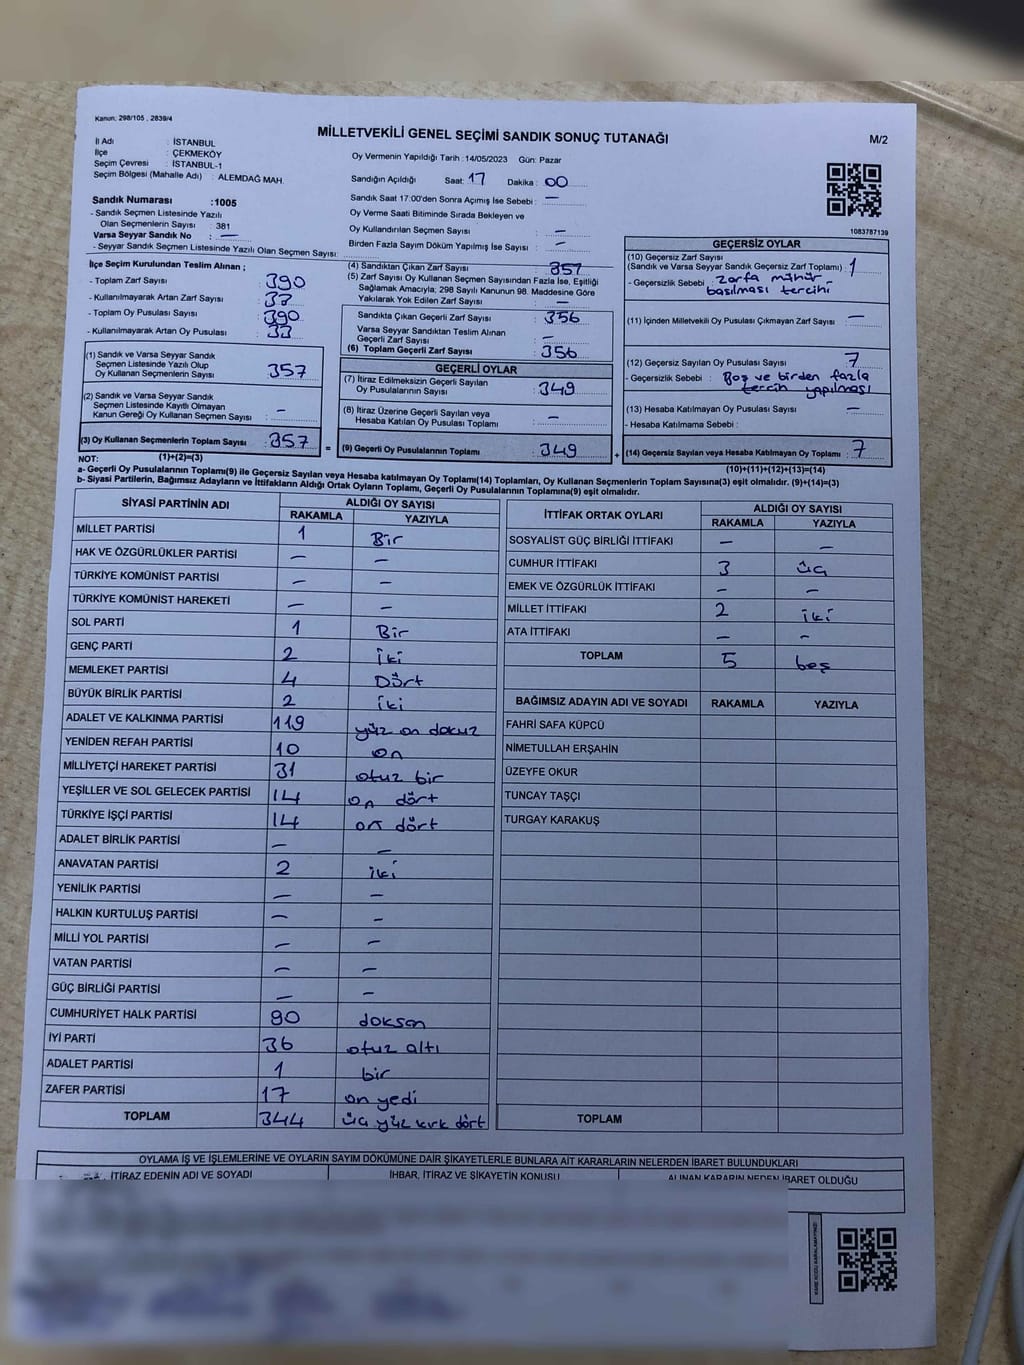 Kanun; 298/105 , 2839/4
MİLLETVEKİLİ GENEL SEÇİMİ SANDIK SONUÇ TUTANAĞI
M/2
İl Adı : İSTANBUL
İlçe : ÇEKMEKÖY
Seçim Çevresi : İSTANBUL-1
Seçim Bölgesi (Mahalle Adı) : ALEMDAĞ MAH.
Oy Vermenin Yapıldığı Tarih : 14/05/2023 Gün: Pazar
Sandığın Açıldığı Saat: 17 Dakika : 00
Sandık Saat 17:00'den Sonra Açımış İse Sebebi : —
Oy Verme Saati Bitiminde Sırada Bekleyen ve
Oy Kullandırılan Seçmen Sayısı : —
Birden Fazla Sayım Döküm Yapılmış İse Sayısı : —
1083787139
Sandık Numarası :1005
- Sandık Seçmen Listesinde Yazılı
Olan Seçmenlerin Sayısı : 381
Varsa Seyyar Sandık No : —
- Seyyar Sandık Seçmen Listesinde Yazılı Olan Seçmen Sayısı:
İlçe Seçim Kurulundan Teslim Alınan ;
- Toplam Zarf Sayısı : 390
- Kullanılmayarak Artan Zarf Sayısı : 33
- Toplam Oy Pusulası Sayısı : 390
- Kullanılmayarak Artan Oy Pusulası : 33
(1) Sandık ve Varsa Seyyar Sandık
Seçmen Listesinde Yazılı Olup
Oy Kullanan Seçmenlerin Sayısı : 357
(2) Sandık ve Varsa Seyyar Sandık
Seçmen Listesinde Kayıtlı Olmayan
Kanun Gereği Oy Kullanan Seçmen Sayısı : —
(3) Oy Kullanan Seçmenlerin Toplam Sayısı : 357
(4) Sandıktan Çıkan Zarf Sayısı : 357
(5) Zarf Sayısı Oy Kullanan Seçmen Sayısından Fazla İse, Eşitliği
Sağlamak Amacıyla; 298 Sayılı Kanunun 98. Maddesine Göre
Yakılarak Yok Edilen Zarf Sayısı : —
Sandıkta Çıkan Geçerli Zarf Sayısı : 356
Varsa Seyyar Sandıktan Teslim Alınan
Geçerli Zarf Sayısı : —
(6) Toplam Geçerli Zarf Sayısı : 356
GEÇERLİ OYLAR
(7) İtiraz Edilmeksizin Geçerli Sayılan
Oy Pusulasının Sayısı : 349
(8) İtiraz Üzerine Geçerli Sayılan veya
Hesaba Katılan Oy Pusulası Toplamı : —
= (9) Geçerli Oy Pusulalarının Toplamı : 349
GEÇERSİZ OYLAR
(10) Geçersiz Zarf Sayısı
(Sandık ve Varsa Seyyar Sandık Geçersiz Zarf Toplamı) : 1
- Geçersizlik Sebebi : zarfa mühür
basılması tercihi
(11) İçinden Milletvekili Oy Pusulası Çıkmayan Zarf Sayısı : —
(12) Geçersiz Sayılan Oy Pusulası Sayısı : 7
- Geçersizlik Sebebi : Boş ve birden fazla
tercih yapılması
(13) Hesaba Katılmayan Oy Pusulası Sayısı : —
- Hesaba Katılmama Sebebi :
+ (14) Geçersiz Sayılan veya Hesaba Katılmayan Oy Toplamı : 7
NOT: (1)+(2)=(3)
(10)+(11)+(12)+(13)=(14)
a- Geçerli Oy Pusulalarının Toplamı(9) ile Geçersiz Sayılan veya Hesaba katılmayan Oy Toplamı(14) Toplamları, Oy Kullanan Seçmenlerin Toplam Sayısına(3) eşit olmalıdır. (9)+(14)=(3)
b- Siyasi Partilerin, Bağımsız Adayların ve İttifakların Aldığı Ortak Oyların Toplamı, Geçerli Oy Pusulalarının Toplamına(9) eşit olmalıdır.
SİYASİ PARTİNİN ADI ALDIĞI OY SAYISI
RAKAMLA YAZIYLA
MİLLET PARTİSİ 1 Bir
HAK VE ÖZGÜRLÜKLER PARTİSİ — —
TÜRKİYE KOMÜNİST PARTİSİ — —
TÜRKİYE KOMÜNİST HAREKETİ — —
SOL PARTİ 1 Bir
GENÇ PARTİ 2 iki
MEMLEKET PARTİSİ 4 Dört
BÜYÜK BİRLİK PARTİSİ 2 iki
ADALET VE KALKINMA PARTİSİ 119 yüz on dokuz
YENİDEN REFAH PARTİSİ 10 on
MİLLİYETÇİ HAREKET PARTİSİ 31 otuz bir
YEŞİLLER VE SOL GELECEK PARTİSİ 14 on dört
TÜRKİYE İŞÇİ PARTİSİ 14 on dört
ADALET BİRLİK PARTİSİ — —
ANAVATAN PARTİSİ 2 iki
YENİLİK PARTİSİ — —
HALKIN KURTULUŞ PARTİSİ — —
MİLLİ YOL PARTİSİ — —
VATAN PARTİSİ — —
GÜÇ BİRLİĞİ PARTİSİ — —
CUMHURİYET HALK PARTİSİ 90 doksan
İYİ PARTİ 36 otuz altı
ADALET PARTİSİ 1 bir
ZAFER PARTİSİ 17 on yedi
TOPLAM 344 üç yüz kırk dört
İTTİFAK ORTAK OYLARI ALDIĞI OY SAYISI
RAKAMLA YAZIYLA
SOSYALİST GÜÇ BİRLİĞİ İTTİFAKI — —
CUMHUR İTTİFAKI 3 üç
EMEK VE ÖZGÜRLÜK İTTİFAKI — —
MİLLET İTTİFAKI 2 iki
ATA İTTİFAKI — —
TOPLAM 5 beş
BAĞIMSIZ ADAYIN ADI VE SOYADI RAKAMLA YAZIYLA
FAHRİ SAFA KÜPCÜ
NİMETULLAH ERŞAHİN
ÜZEYFE OKUR
TUNCAY TAŞÇI
TURGAY KARAKUŞ
TOPLAM
OYLAMA İŞ VE İŞLEMLERİNE VE OYLARIN SAYIM DÖKÜMÜNE DAİR ŞİKAYETLERLE BUNLARA AİT KARARLARIN NELERDEN İBARET BULUNDUKLARI
İTİRAZ EDENİN ADI VE SOYADI İHBAR, İTİRAZ VE ŞİKAYETİN KONUSU ALINAN KARARIN NEDEN İBARET OLDUĞU